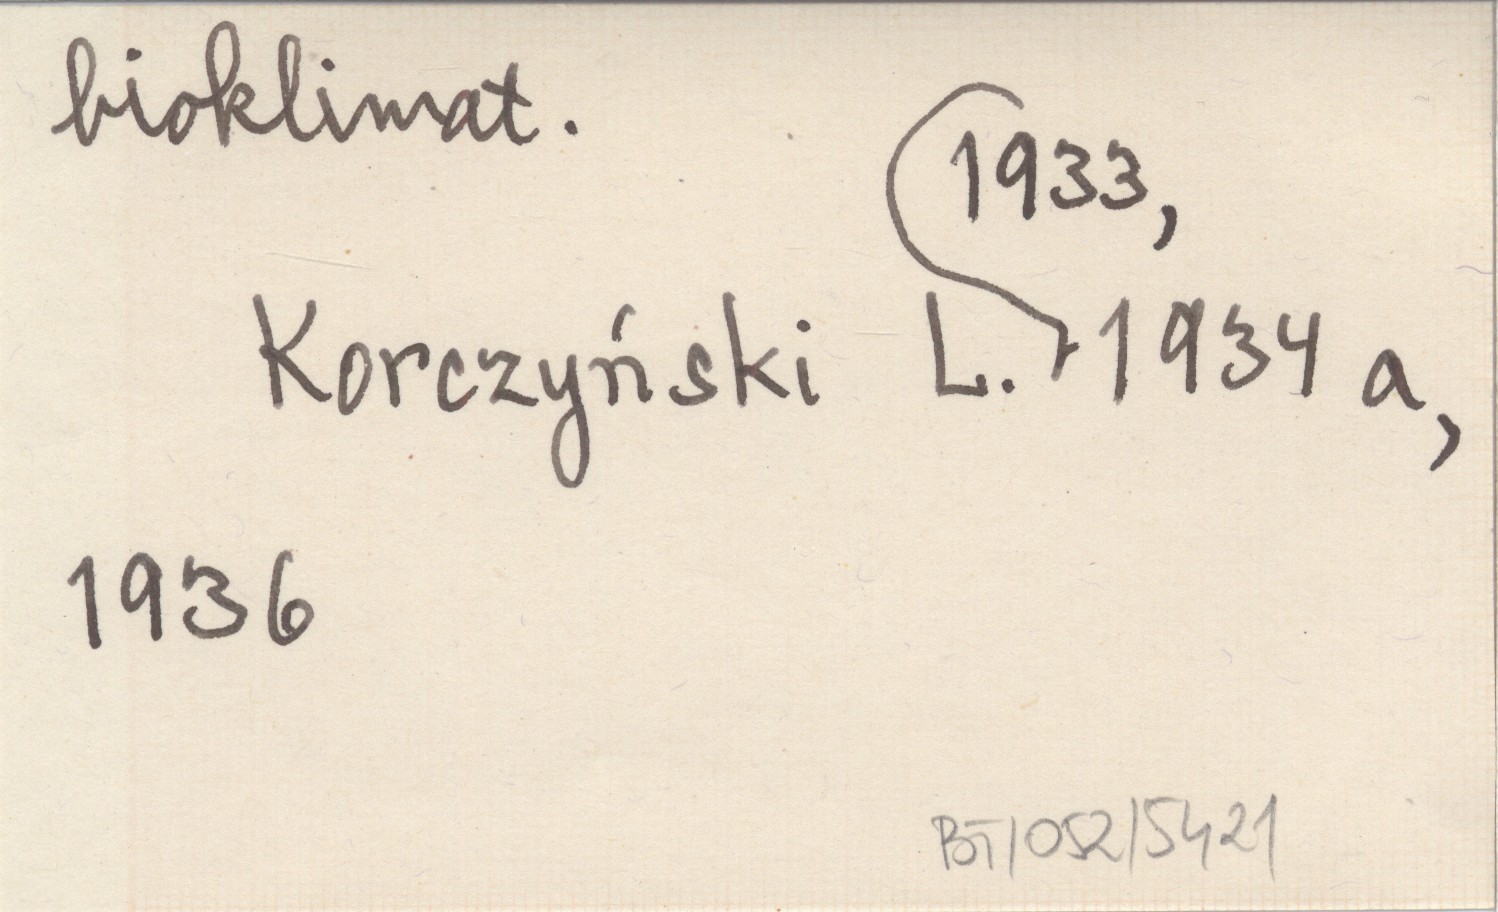 bioklimat.
1933,
Korczyński L. 1934 a,
1936
BT/052/5421